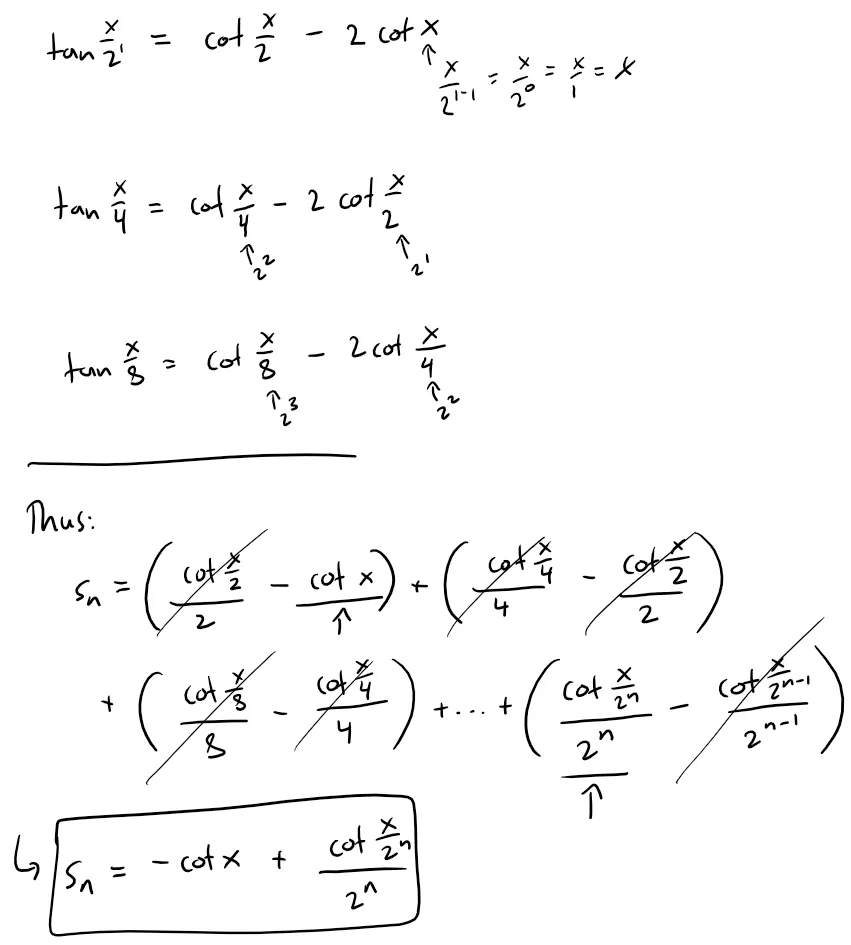 tan x/2¹ = cot x/2 - 2 cot x
↑ x/2¹⁻¹ = x/2⁰ = x/1 = x
tan x/4 = cot x/4 - 2 cot x/2
↑ 2² ↑ 2¹
tan x/8 = cot x/8 - 2 cot x/4
↑ 2³ ↑ 2²
Thus:
Sₙ = ((cot x/2)/2 - cot x) + ((cot x/4)/4 - (cot x/2)/2)
↑
+ ((cot x/8)/8 - (cot x/4)/4) + ... + ((cot x/2ⁿ)/2ⁿ - (cot x/2ⁿ⁻¹)/2ⁿ⁻¹)
↑
↳ Sₙ = - cot x + (cot x/2ⁿ)/2ⁿ